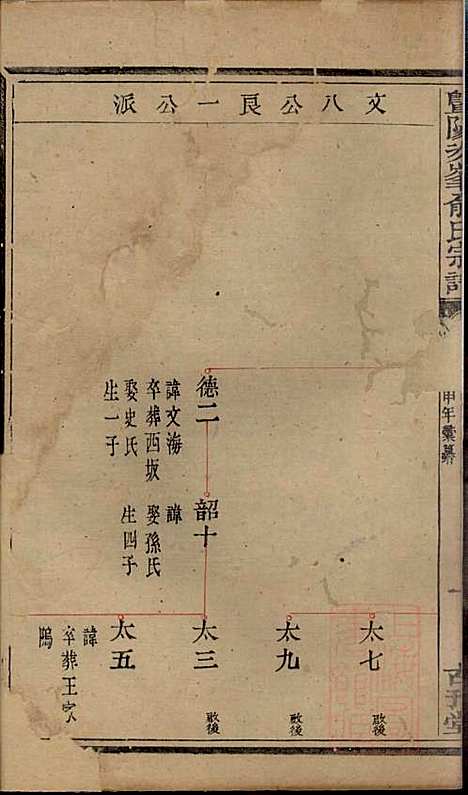 文八公良一公派
德二
諱文海
卒葬西坂
娶史氏
生一子
韶十
諱
娶孫氏
生四子
太七
啟後
太九
啟後
太三
啟後
太五
諱
卒葬王家
塢
俞氏宗譜
甲年彙纂
一